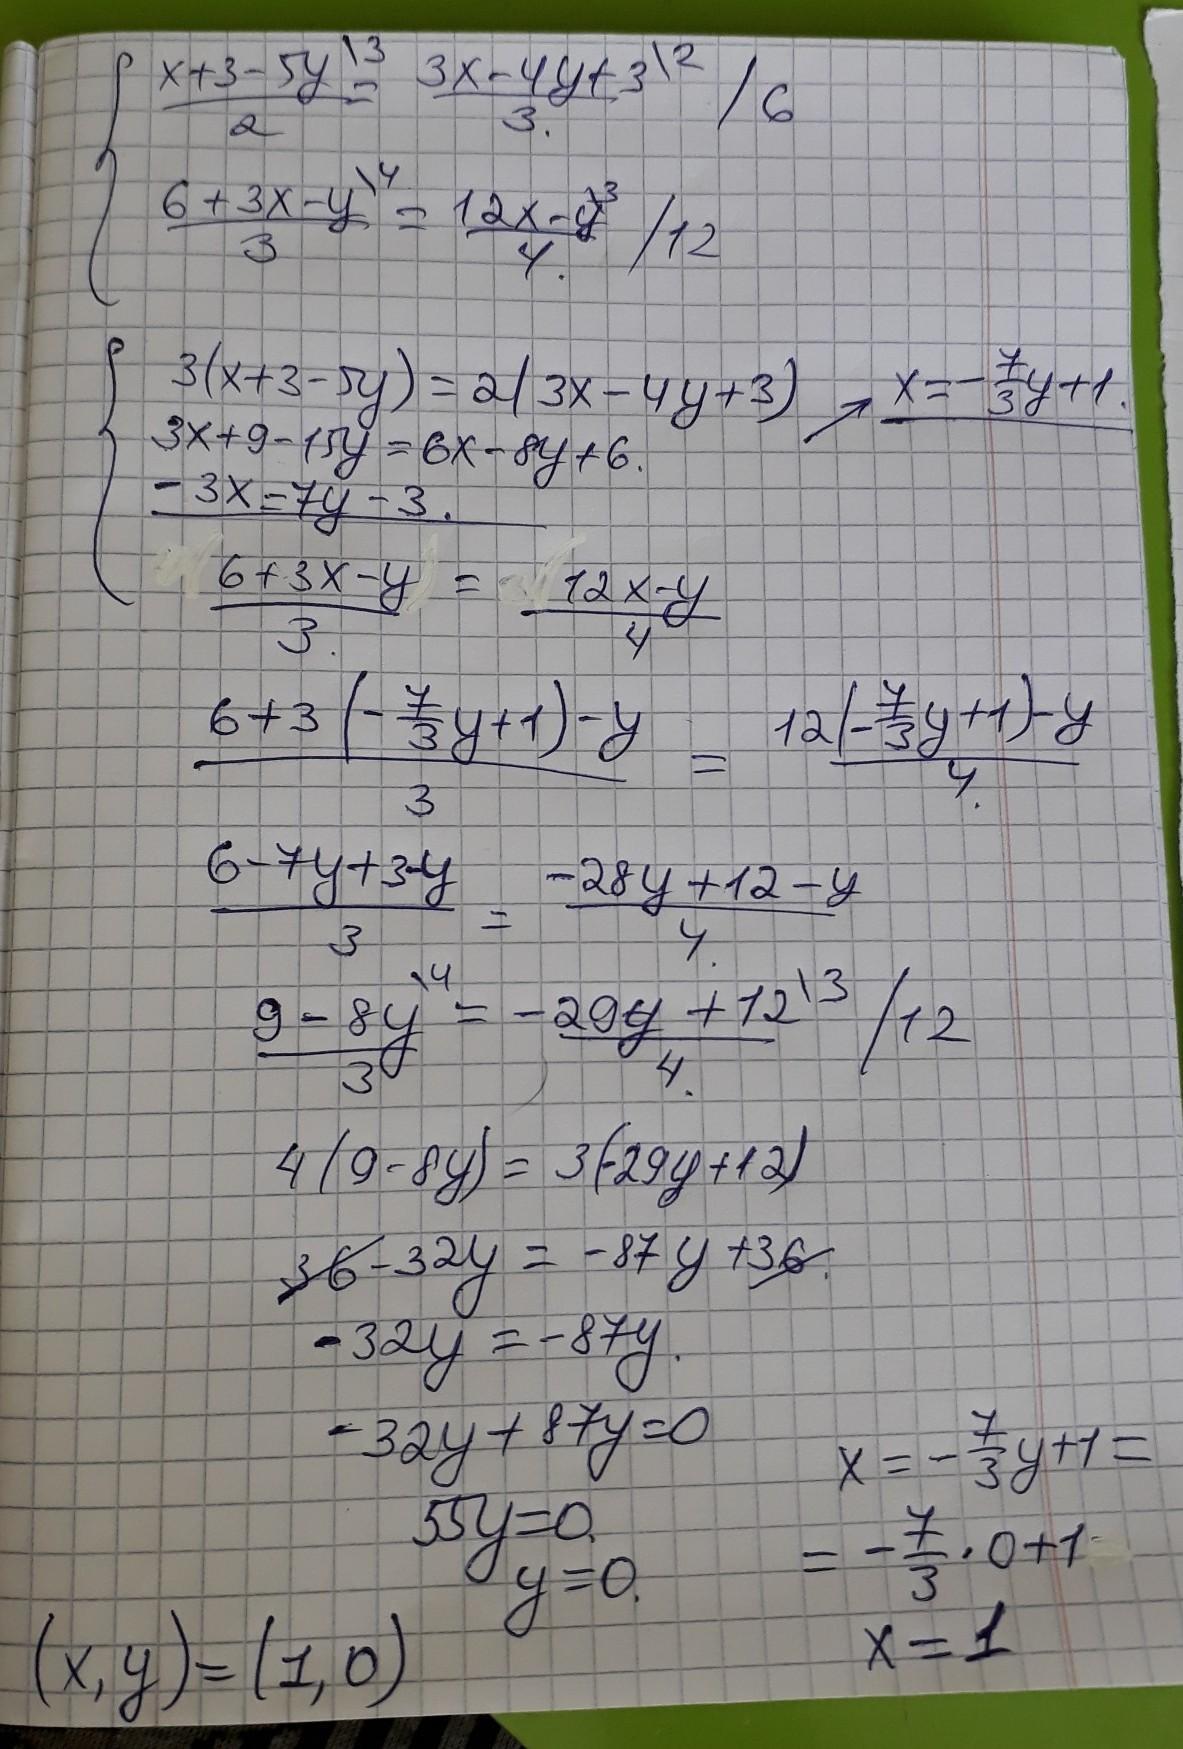 { (x+3-5y)/2 \3 = (3x-4y+3)/3. \2 /6
(6+3x-y)/3 \4 = (12x-y)/4. \3 /12
{ 3(x+3-5y)=2(3x-4y+3) → x=-7/3y+1.
3x+9-15y=6x-8y+6.
-3x=7y-3.
(6+3x-y)/3. = (12x-y)/4
(6+3(-7/3y+1)-y)/3 = (12(-7/3y+1)-y)/4.
(6-7y+3-y)/3 = (-28y+12-y)/4.
(9-8y)/3 \4 = (-29y+12)/4. \3 /12
4(9-8y)=3(-29y+12)
36-32y=-87y+36.
-32y=-87y.
-32y+87y=0
55y=0.
y=0.
x=-7/3y+1=
=-7/3·0+1
x=1
(x,y)=(1,0)